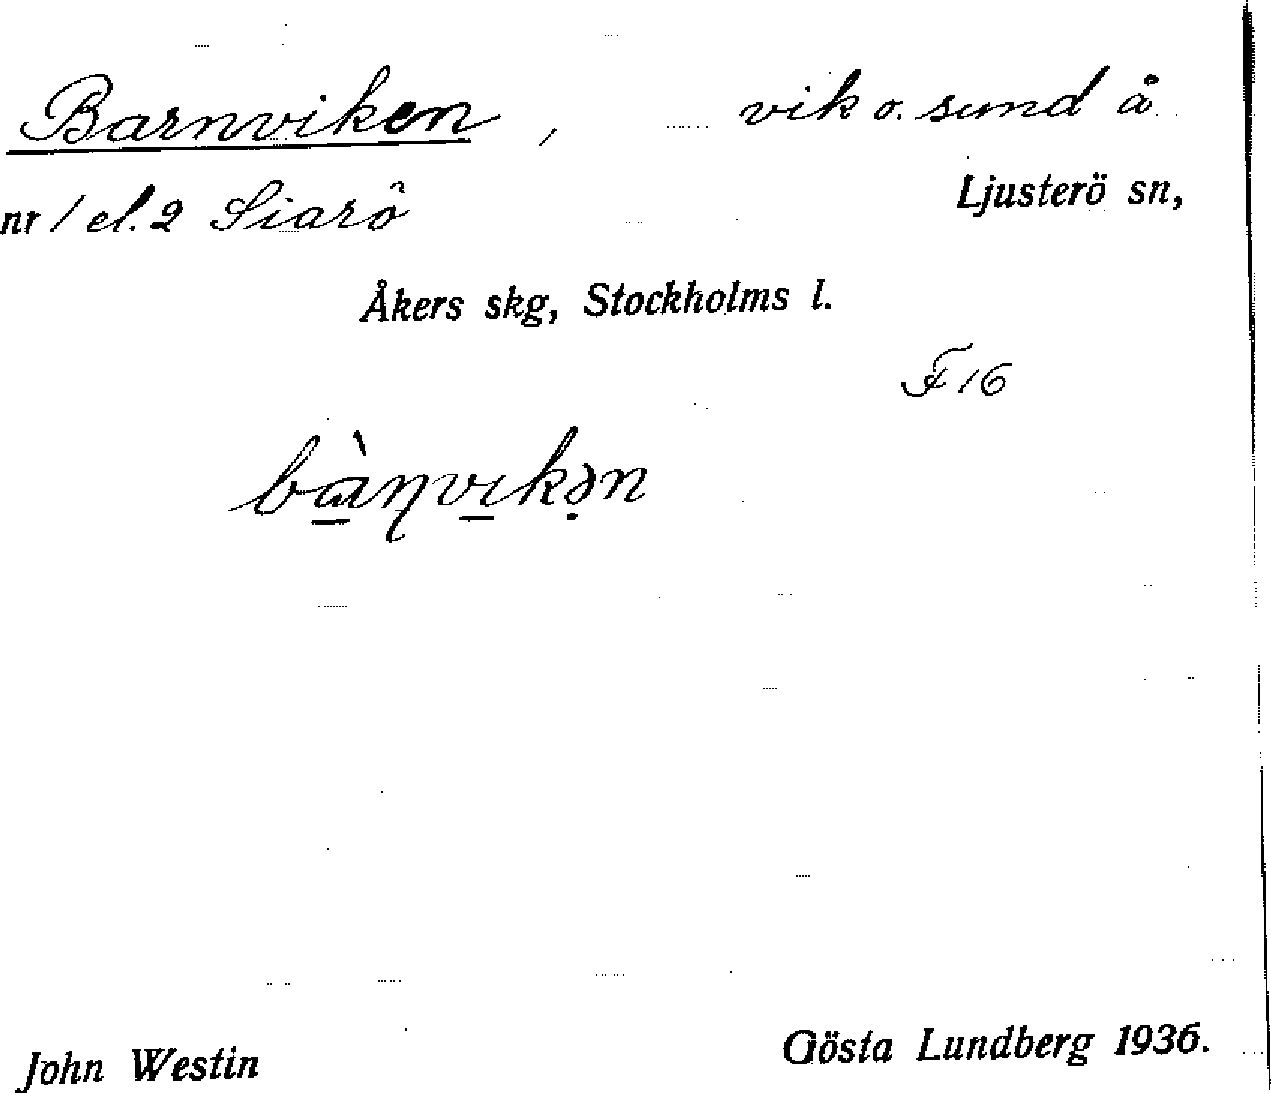 Barnviken, vik o. sund å
nr 1 el. 2 Siarö Ljusterö sn,
Åkers skg, Stockholms l.
F 16
bà̱ŋvi̱kə̣n
John Westin Gösta Lundberg 1936.